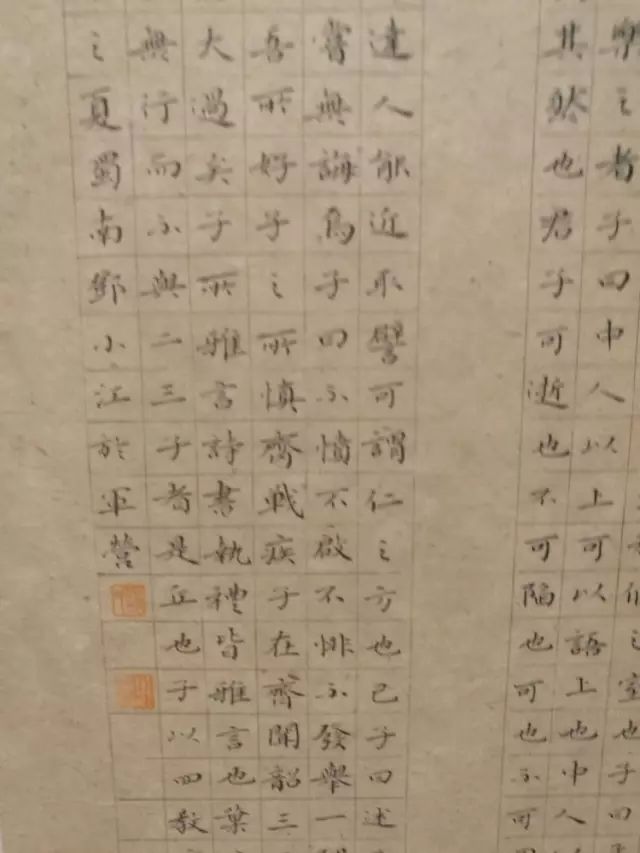 之室也子曰
樂之者子曰中人以上可以語上也中人
其然也君子可逝也不可陷也可也不可
達人能近取譬可謂仁之方也已子曰述
嘗無誨焉子曰不憤不啟不悱不發舉一
吾所好子之所慎齊戰疾子在齊聞韶三
大過矣子所雅言詩書執禮皆雅言也葉
無行而不與二三子者是丘也子以四教
之夏蜀南鄧小江於軍營